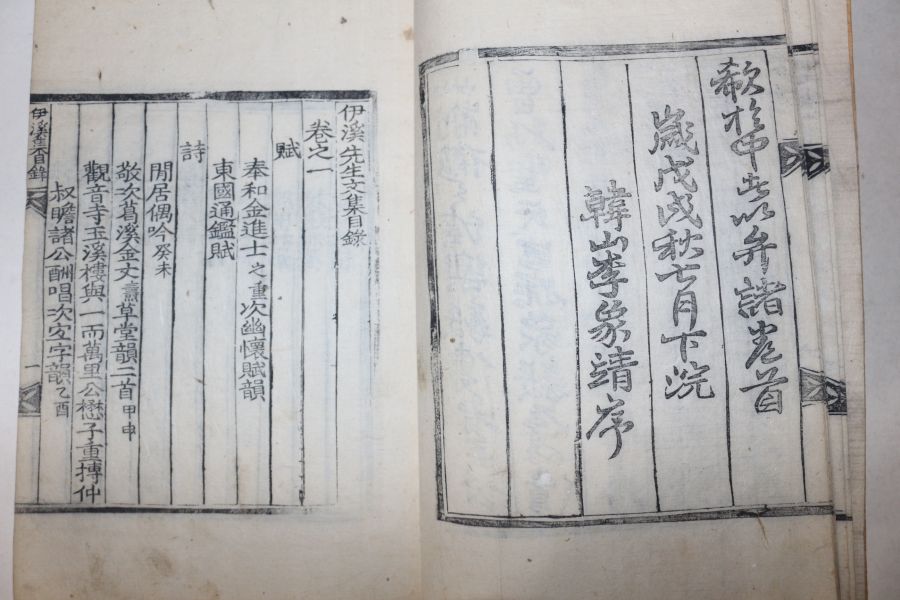 歎於中此以弁諸卷首
歲戊戌秋七月下浣
韓山李象靖序
伊溪先生文集目錄
卷之一
賦
奉和金進士之重次幽懷賦韻
東國通鑑賦
詩
閒居偶吟癸未
敬次葛溪金丈草堂韻二首甲申
觀音寺玉溪樓與一而萬里公懋子重摶仲
叔瞻諸公酬唱次定字韻乙酉
伊溪集目錄
一